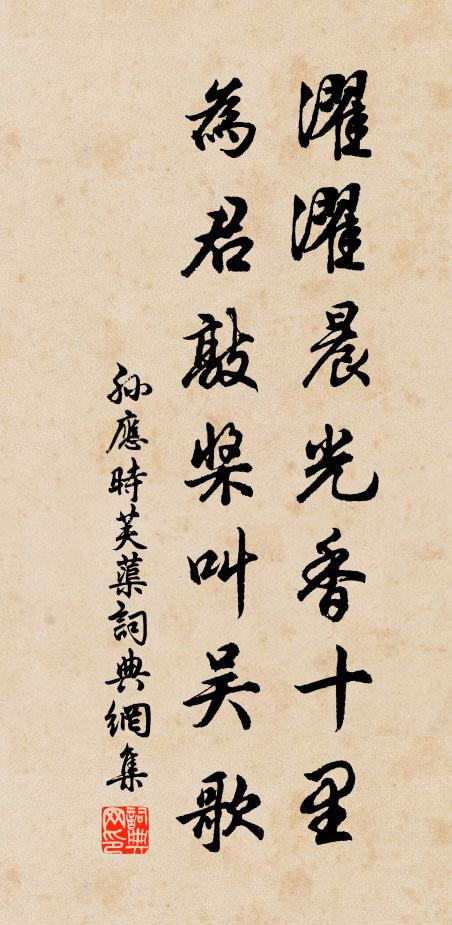 濯濯晨光香十里
為君敲槳叫吴歌
孫應時芙蕖詞典網集
詞典网印